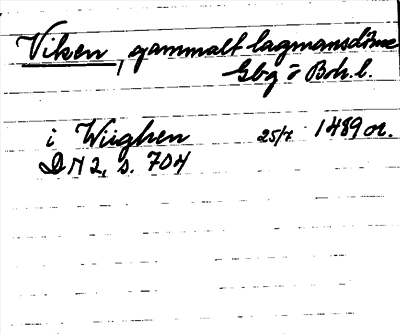 Viken, gammalt lagmansdöme
Gbg o Boh. l.
i Wiighen 25/7 1489 or.
DN 2, s. 704